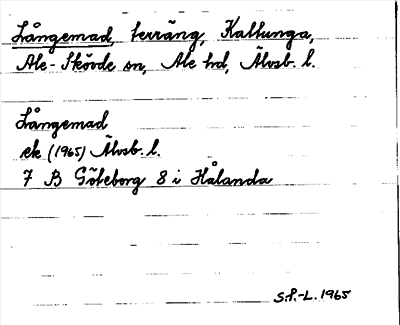 Långemad, terräng, Kattunga,
Ale-Skövde sn, Ale hd, Älvsb. l.
Långemad
ek (1965) Älvsb. l.
7 B Göteborg 8 i Hålanda
S.F.-L. 1965